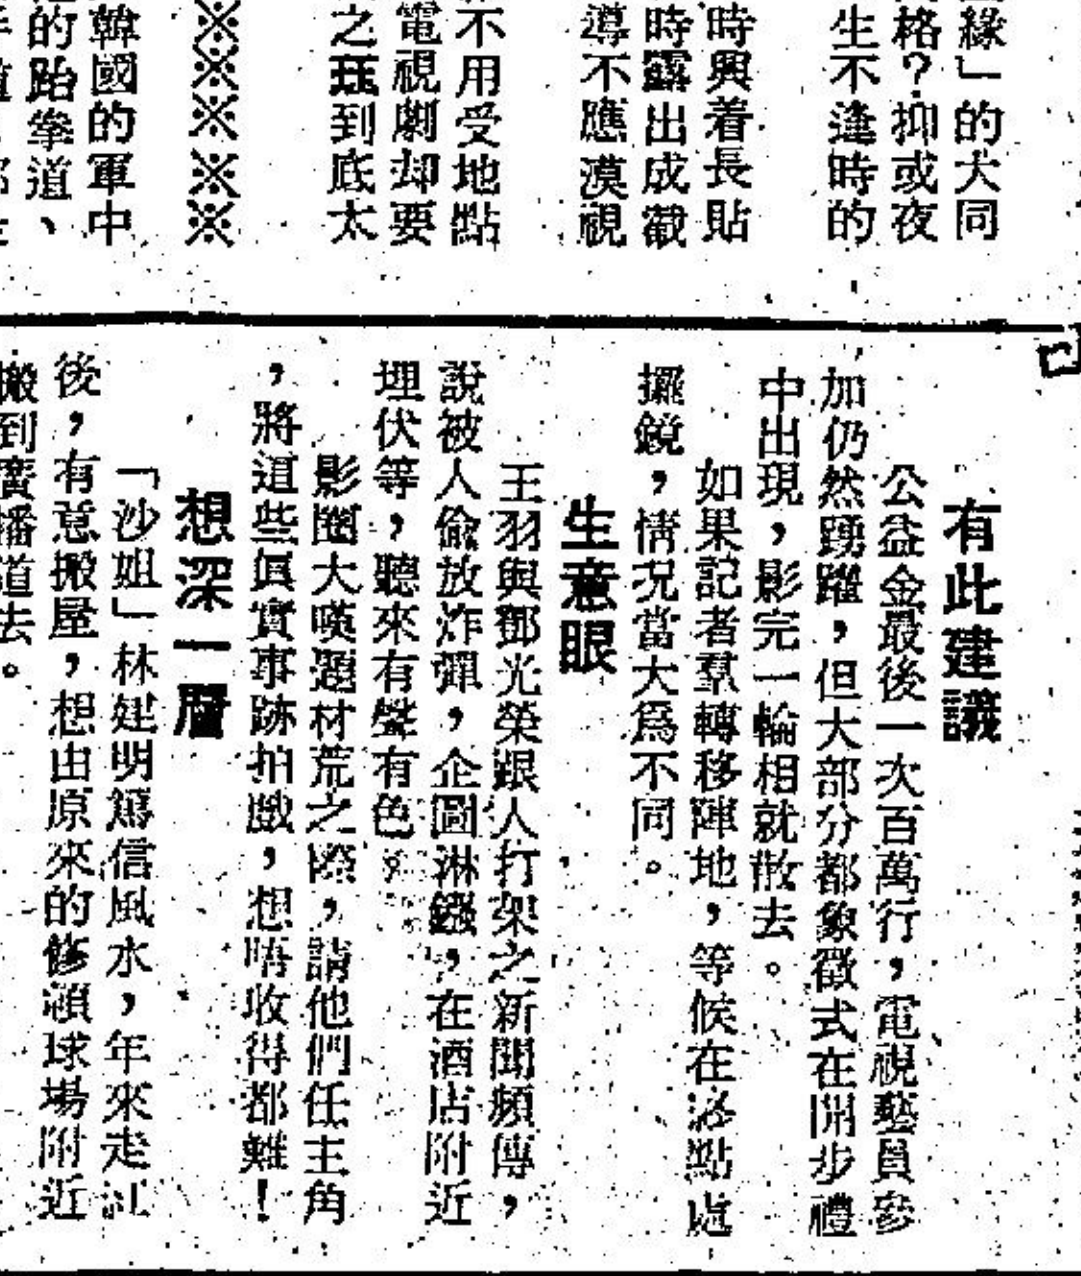 緣」的犬同
格？抑或夜
生不逢時的
時興着長貼
時露出成觀
導不應漠視
不用受地點
電視劇却要
之珏到底太
※※※※※
韓國的軍中
的跆拳道、
有此建議
公益金最後一次百萬行，電視藝員參
加仍然踴躍，但大部分都象徵式在開步禮
中出現，影完一輪相就散去。
如果記者羣轉移陣地，等候在終點處
擺鏡，情況當大爲不同。
生意眼
王羽與鄧光榮跟人打架之新聞頻傳，
說被人偷放炸彈，企圖淋鏹，在酒店附近
埋伏等，聽來有聲有色。
影圈大嘆題材荒之際，請他們任主角
，將這些眞實事跡拍戲，想唔收得都難！
想深一層
「沙姐」林建明篤信風水，年來走紅
後，有意搬屋，想由原來的修頓球場附近
搬到廣播道去。